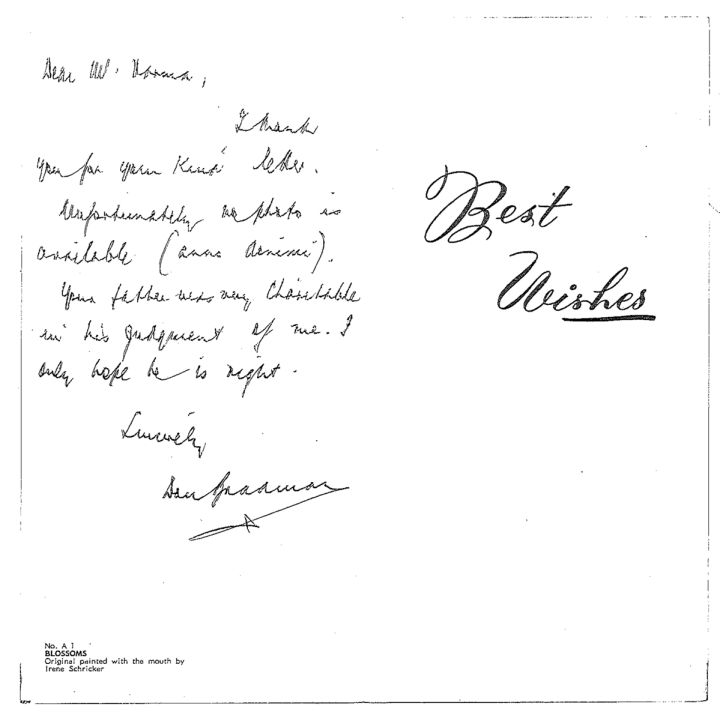 Dear Mr. Varma,
Thank
you for your kind letter.
Unfortunately no photo is
available (anno domini).
Your father was very charitable
in his judgment of me. I
only hope he is right.
Sincerely
Don Bradman
Best
Wishes
No. A 1
BLOSSOMS
Original painted with the mouth by
Irene Schricker